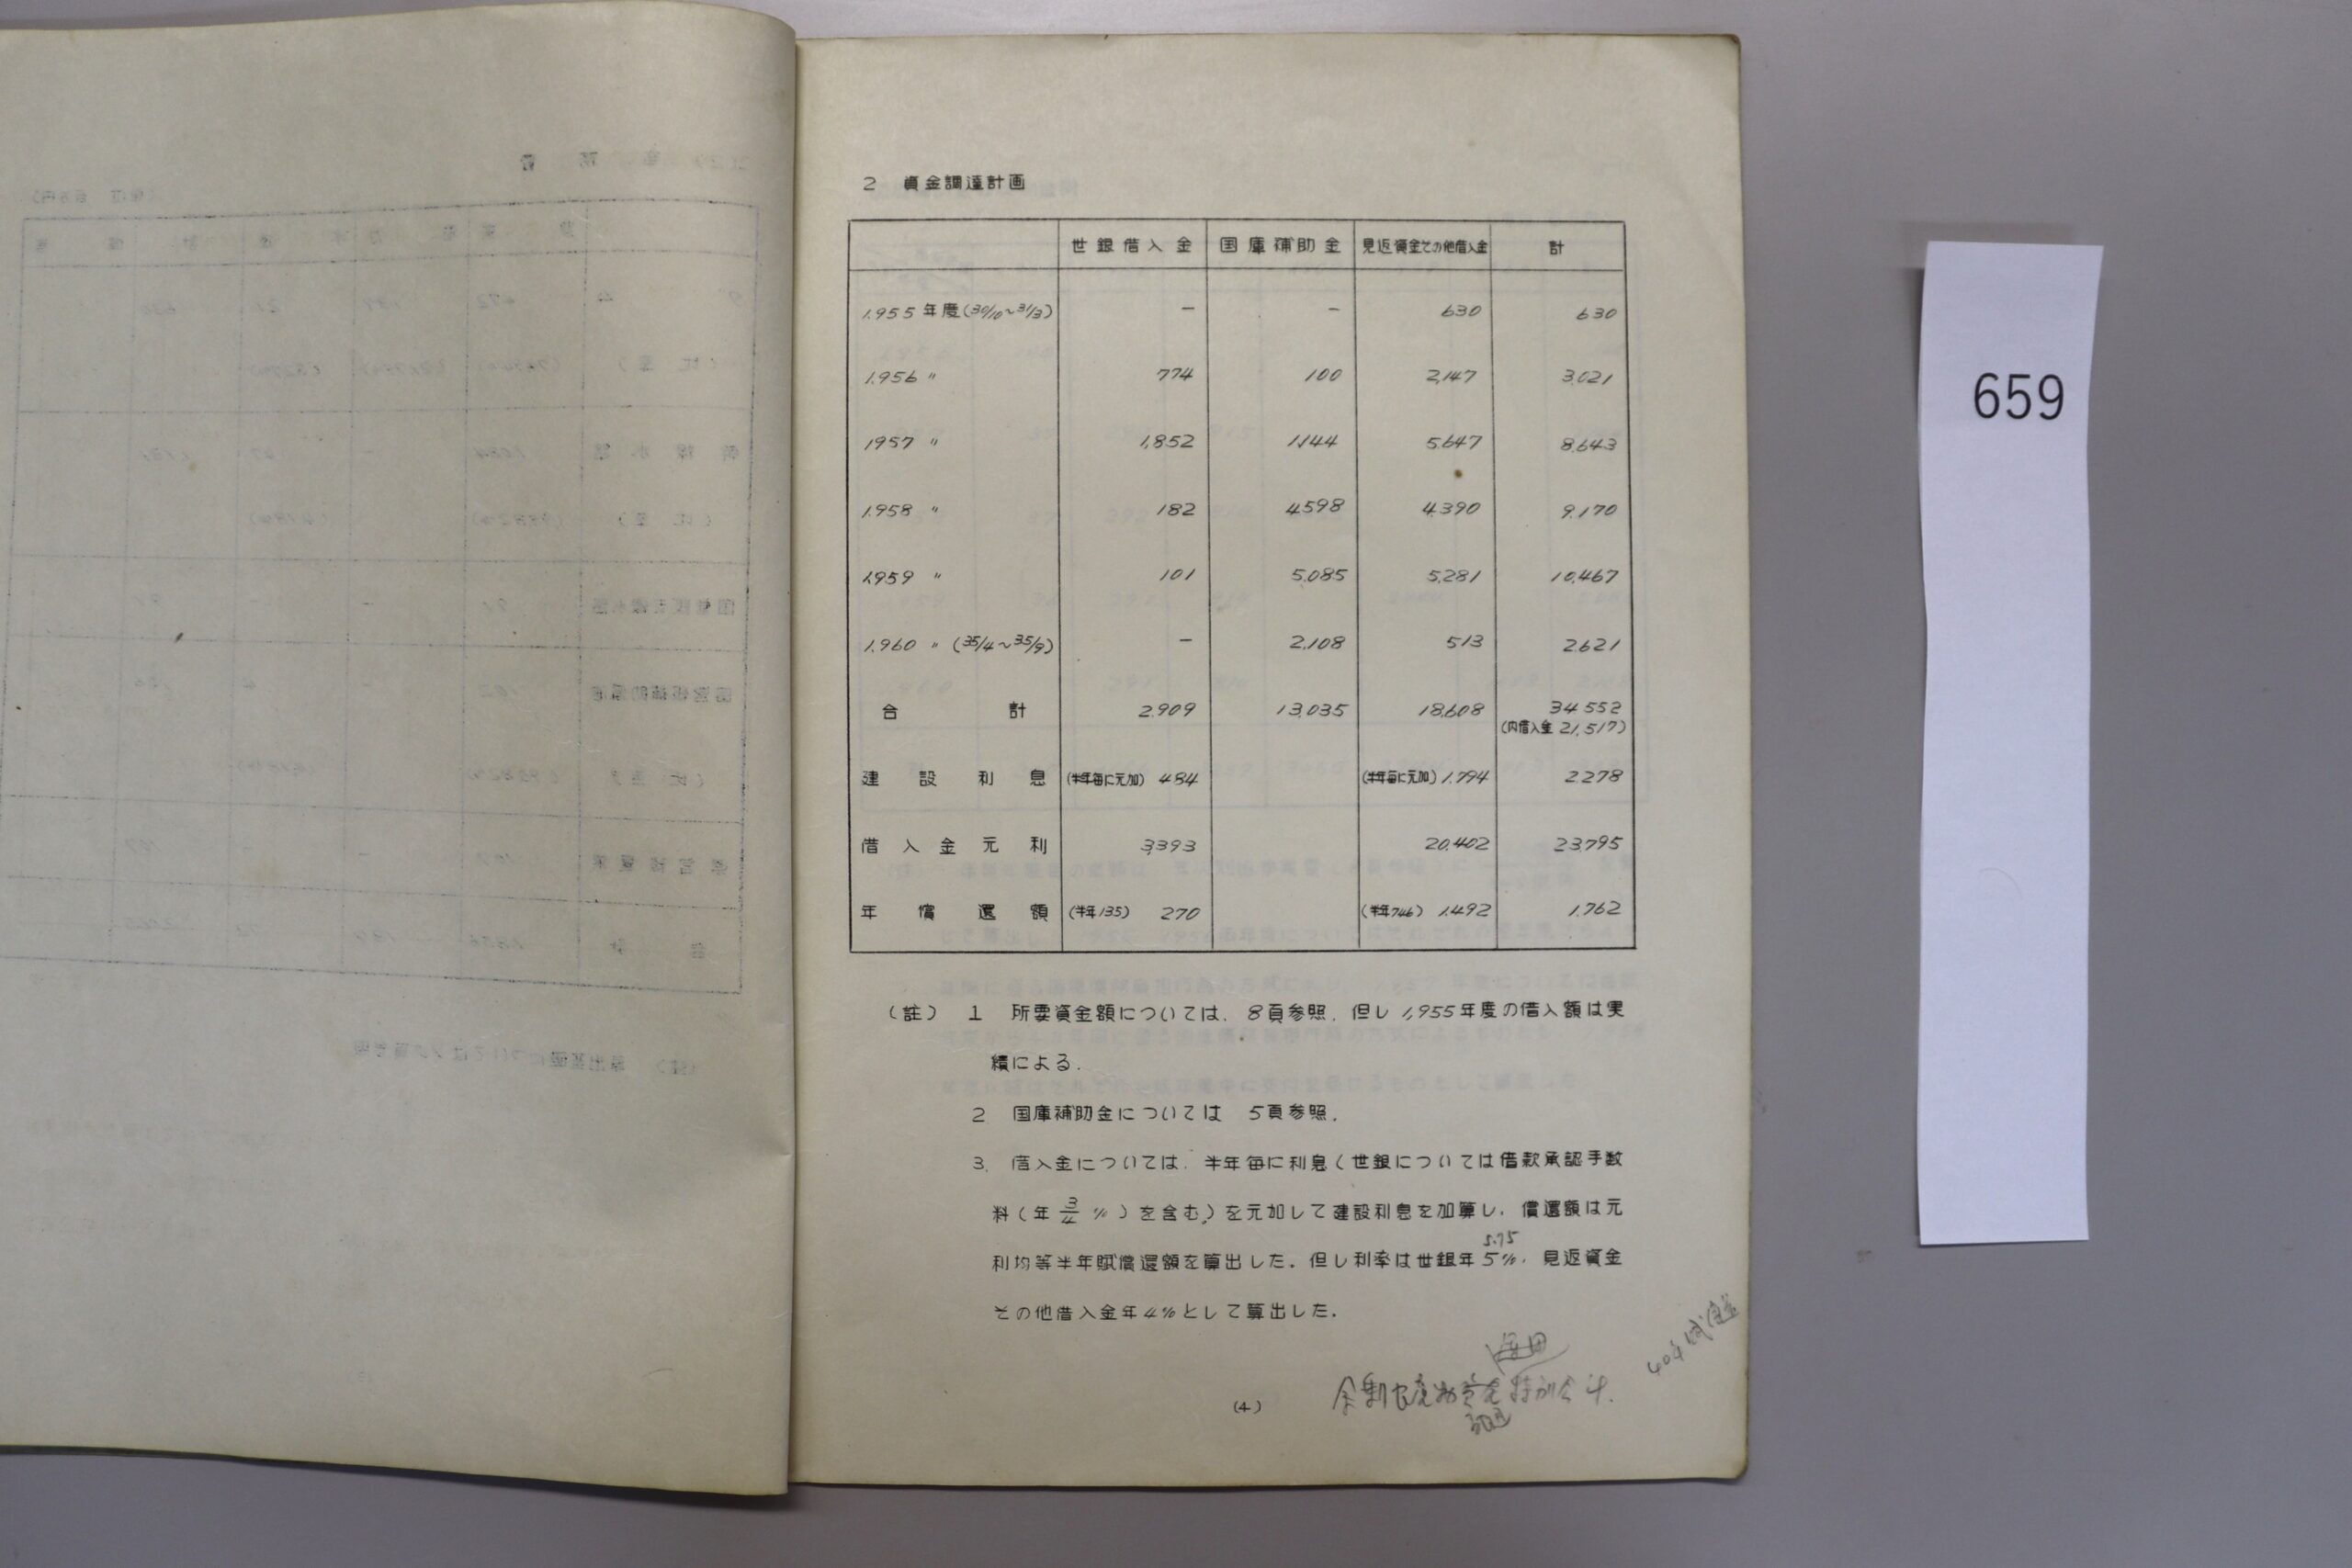 2 資金調達計画
世銀借入金 国庫補助金 見返資金その他借入金 計
1,955年度(30/10~31/3) — — 630 630
1,956 〃 774 100 2,147 3,021
1957 〃 1,852 1,144 5,647 8,643
1,958 〃 182 4,598 4,390 9,170
1,959 〃 101 5,085 5,281 10,467
1,960 〃 (35/4~35/9) — 2,108 513 2,621
合計 2,909 13,035 18,608 34,552
(内借入金 21,517)
建設利息 (半年毎に元加) 484 (半年毎に元加) 1,794 2,278
借入金元利 3,393 20,402 23,795
年償還額 (半年135) 270 (半年746) 1,492 1,762
(註) 1 所要資金額については、8頁参照、但し1,955年度の借入額は実
績による.
2 国庫補助金については 5頁参照.
3. 借入金については、半年毎に利息(世銀については借款承認手数
料(年3/4%)を含む。)を元加して建設利息を加算し、償還額は元
5.75
利均等半年賦償還額を算出した. 但し利率は世銀年5%、見返資金
その他借入金年4%として算出した.
(4)
659